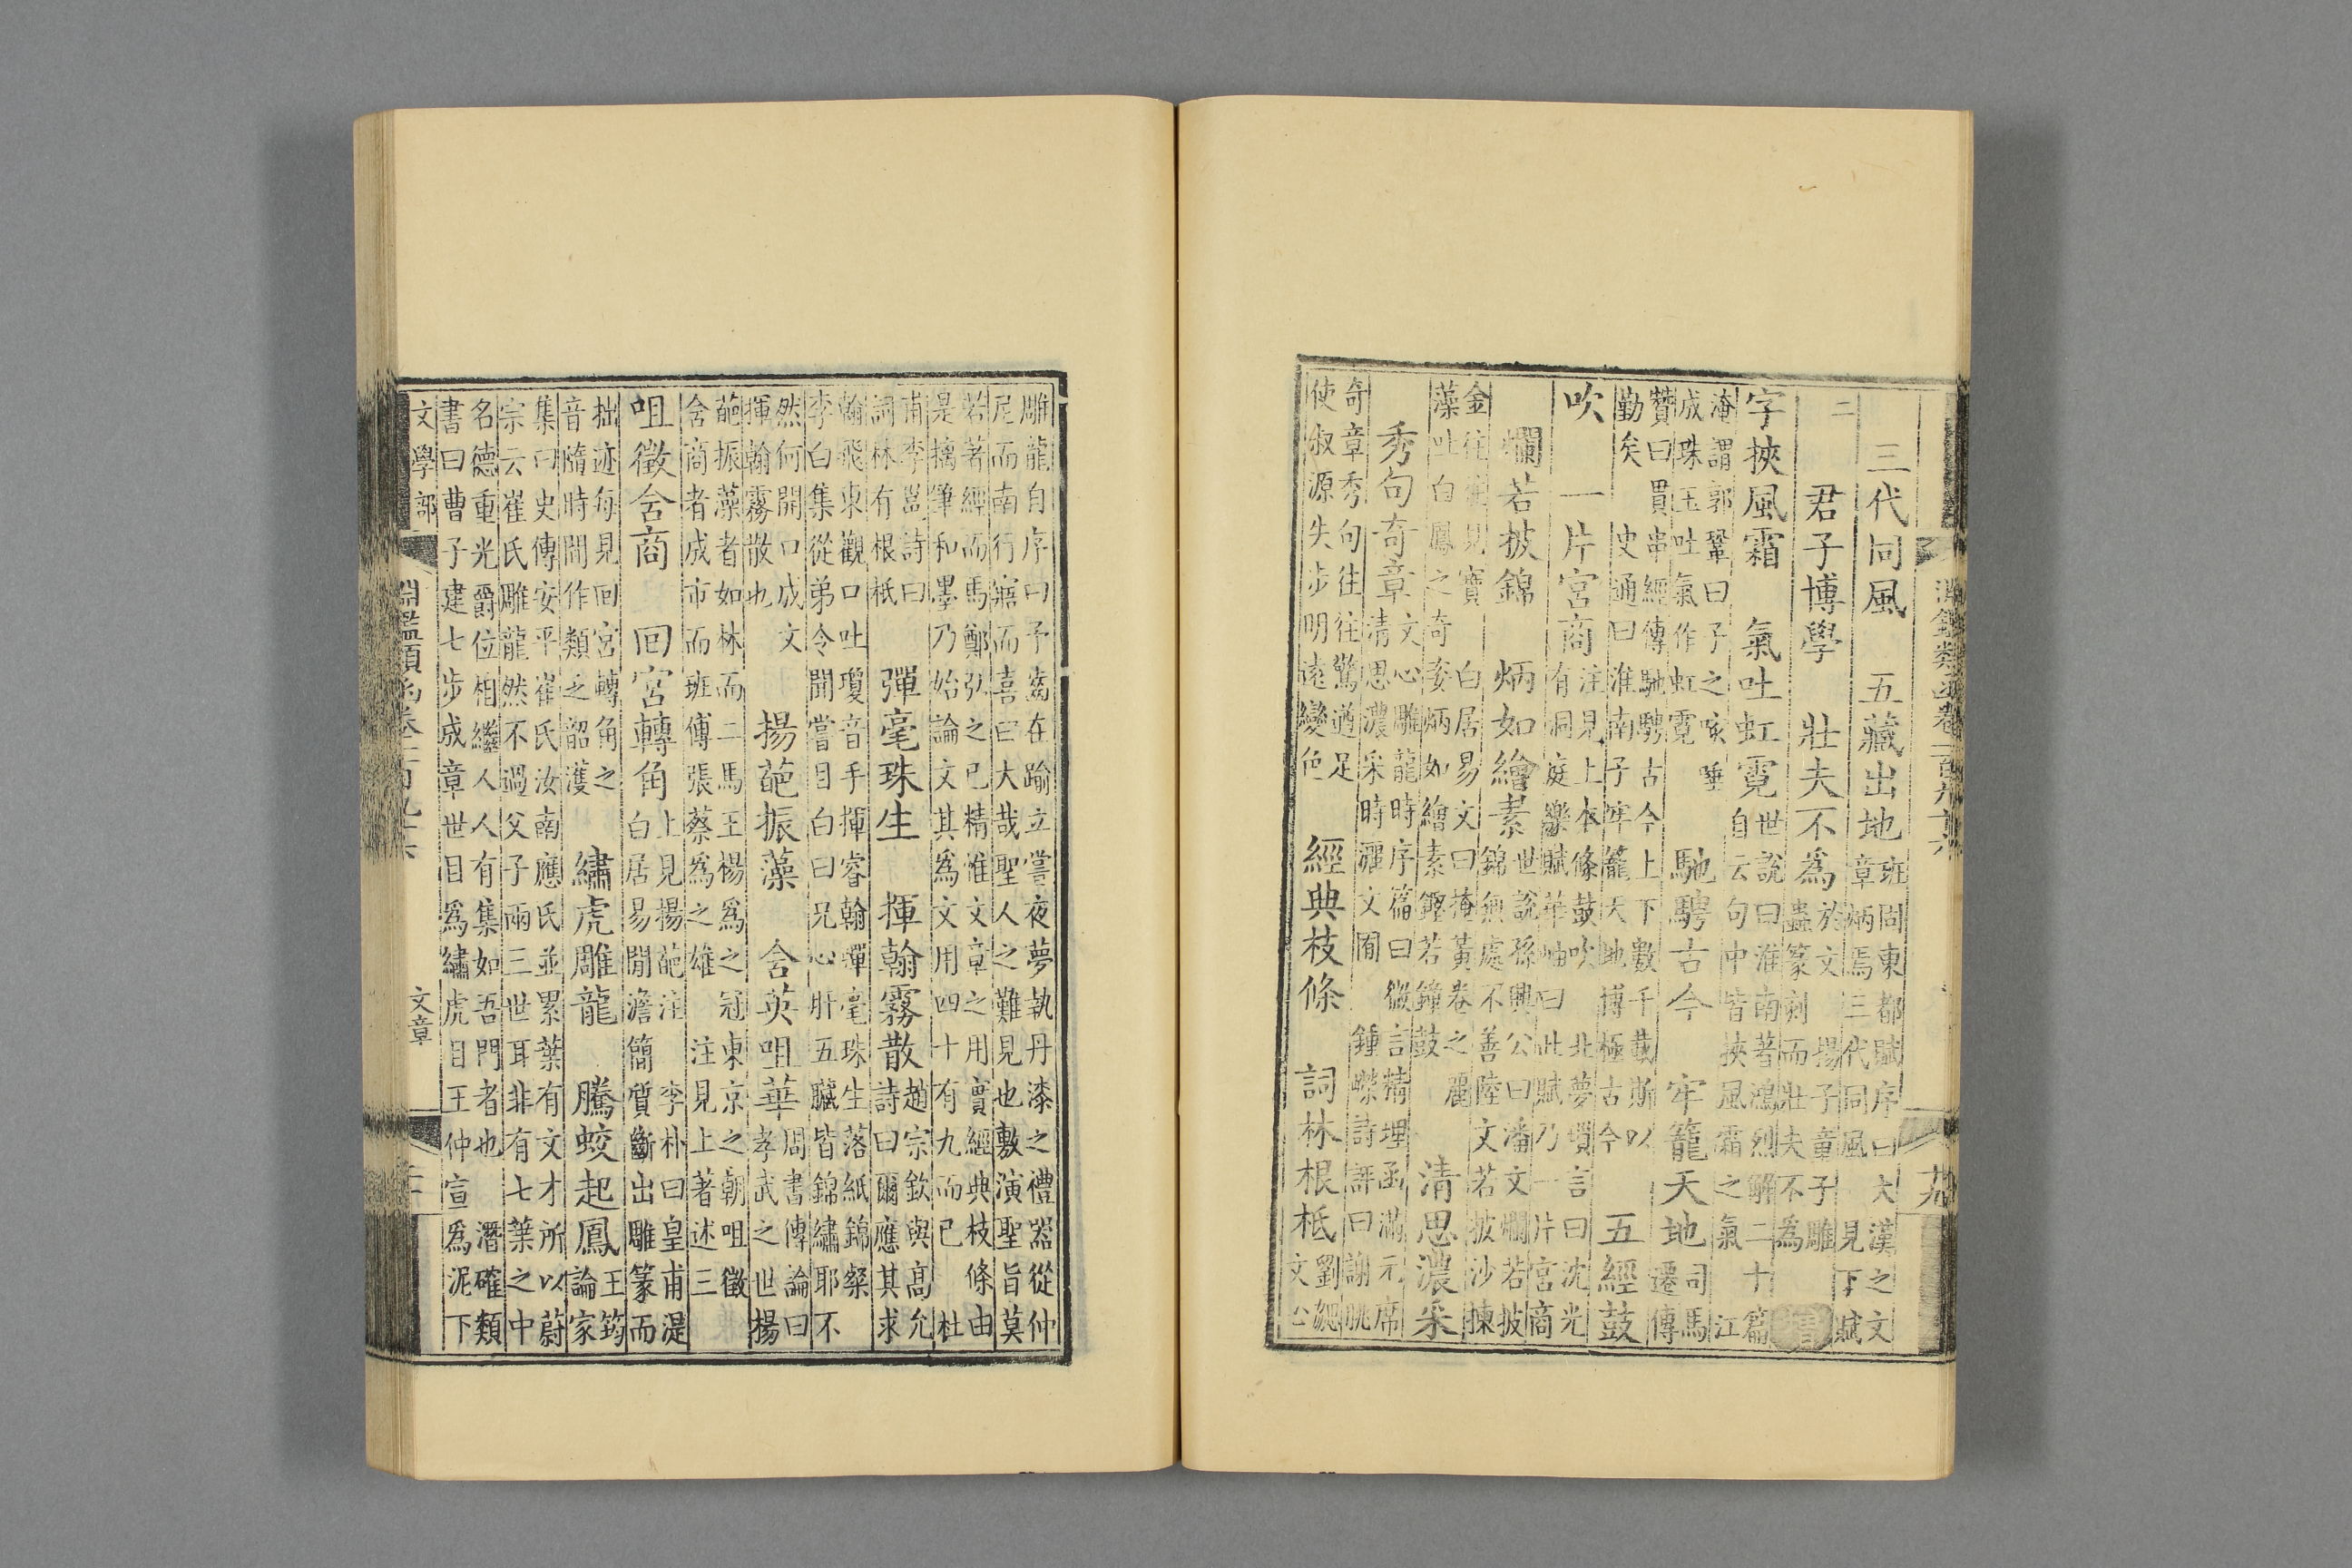 三代同風　五藏出地
班固東都賦序曰大漢之文
章炳焉三代同風　見下賦
二
君子博學　壯夫不為
於文　揚子童子雕
蟲篆刻而壯夫不為
字挾風霜　氣吐虹霓
世說曰淮南著鴻烈解二十篇
自云句中皆挾風霜之氣　江
淹謂郭鞏曰子之咳唾
成珠玉吐氣作虹霓
馳騁古今　牢籠天地
司馬
遷傳
贊曰貫串經傳馳騁古今上下數千載斯以
勤矣　史通曰淮南子牢籠天地博極古今
五經鼓
吹　一片宮商
注見上本條鼓吹　北夢瑣言曰沈光
有洞庭樂賦韋岫曰此賦乃一片宮商
爛若披錦　炳如繪素
世說孫興公曰潘文爛若披
錦無處不善陸文若披沙揀
金往往見寶　白居易文曰掩黃卷之麗
藻吐白鳳之奇姿炳如繪素鏗若鐘鼓
清思濃采
秀句奇章
文心雕龍時序篇曰微言精理函滿元席
清思濃采時灑文囿　鍾嶸詩評曰謝朓
奇章秀句往往驚遒足
使叔源失步明遠變色
經典枝條　詞林根柢
劉勰
文心
雕龍自序曰予齒在踰立嘗夜夢執丹漆之禮器從仲
尼而南行寤而喜曰大哉聖人之難見也敷演聖旨莫
若著經而馬鄭弘之已精惟文章之用實經典枝條由
是搦筆和墨乃始論文其為文用四十有九而已　杜
甫李邕詩曰
詞林有根柢
彈毫珠生　揮翰霧散
趙宗欽與高允
詩曰爾應其求
翰飛東觀口吐瓊音手揮睿翰彈毫珠生落紙錦粲
李白集從弟令聞嘗目白曰兄心肝五臟皆錦繡耶不
然何開口成文
揮翰霧散也
揚葩振藻　含英咀華
周書傳論曰
孝武之世揚
葩振藻者如林而二馬王楊為之冠東京之朝咀徵
含商者成市而班傅張蔡為之雄　注見上著述三
咀徵含商　回宮轉角
上見揚葩注　李朴曰皇甫湜
白居易閒澹簡質斷出雕篆而
拙迹每見回宮轉角之
音隨時間作類之韶濩
繡虎雕龍　騰蛟起鳳
王筠
論家
集曰史傳安平崔氏汝南應氏並累葉有文才所以蔚
宗云崔氏雕龍然不過父子兩三世耳非有七葉之中
名德重光爵位相繼人人有集如吾門者也　潛確類
書曰曹子建七步成章世目為繡虎目王仲宣為泥下
文學部　淵鑑類函卷一百九十六　文章